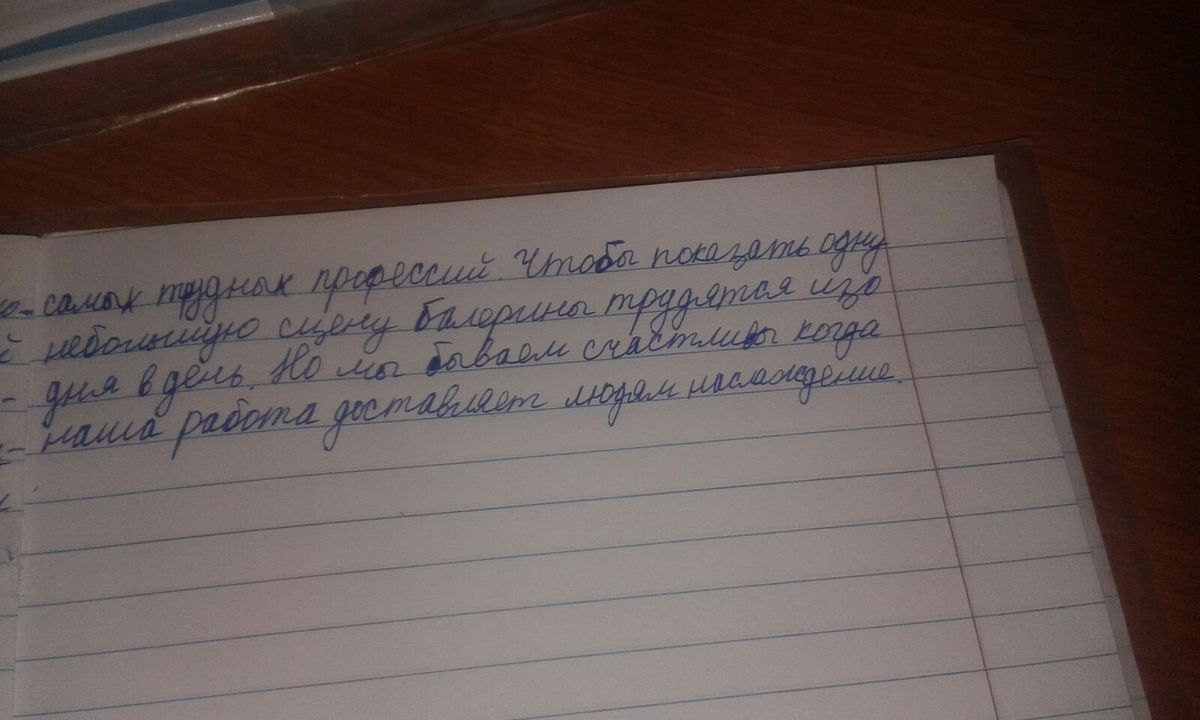 самых трудных профессий. Чтобы показать одну
небольшую сцену балерины трудятся изо
дня в день. Но мы бываем счастливы когда
наша работа доставляет людям наслаждение.